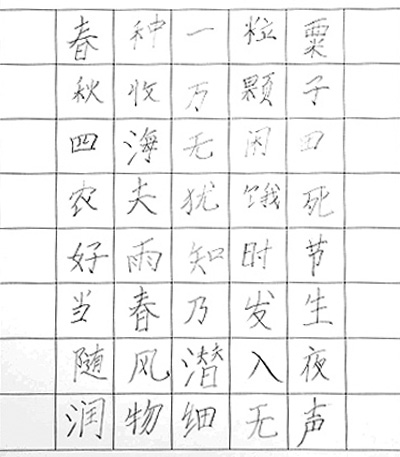 春种一粒粟
秋收万颗子
四海无闲田
农夫犹饿死
好雨知时节
当春乃发生
随风潜入夜
润物细无声